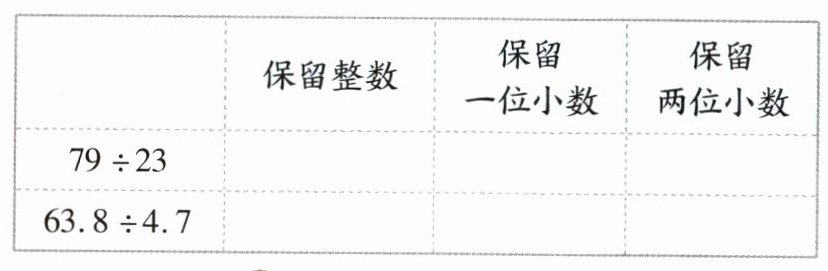 保留整数
保留
一位小数
保留
两位小数
79÷23
63.8÷4.7